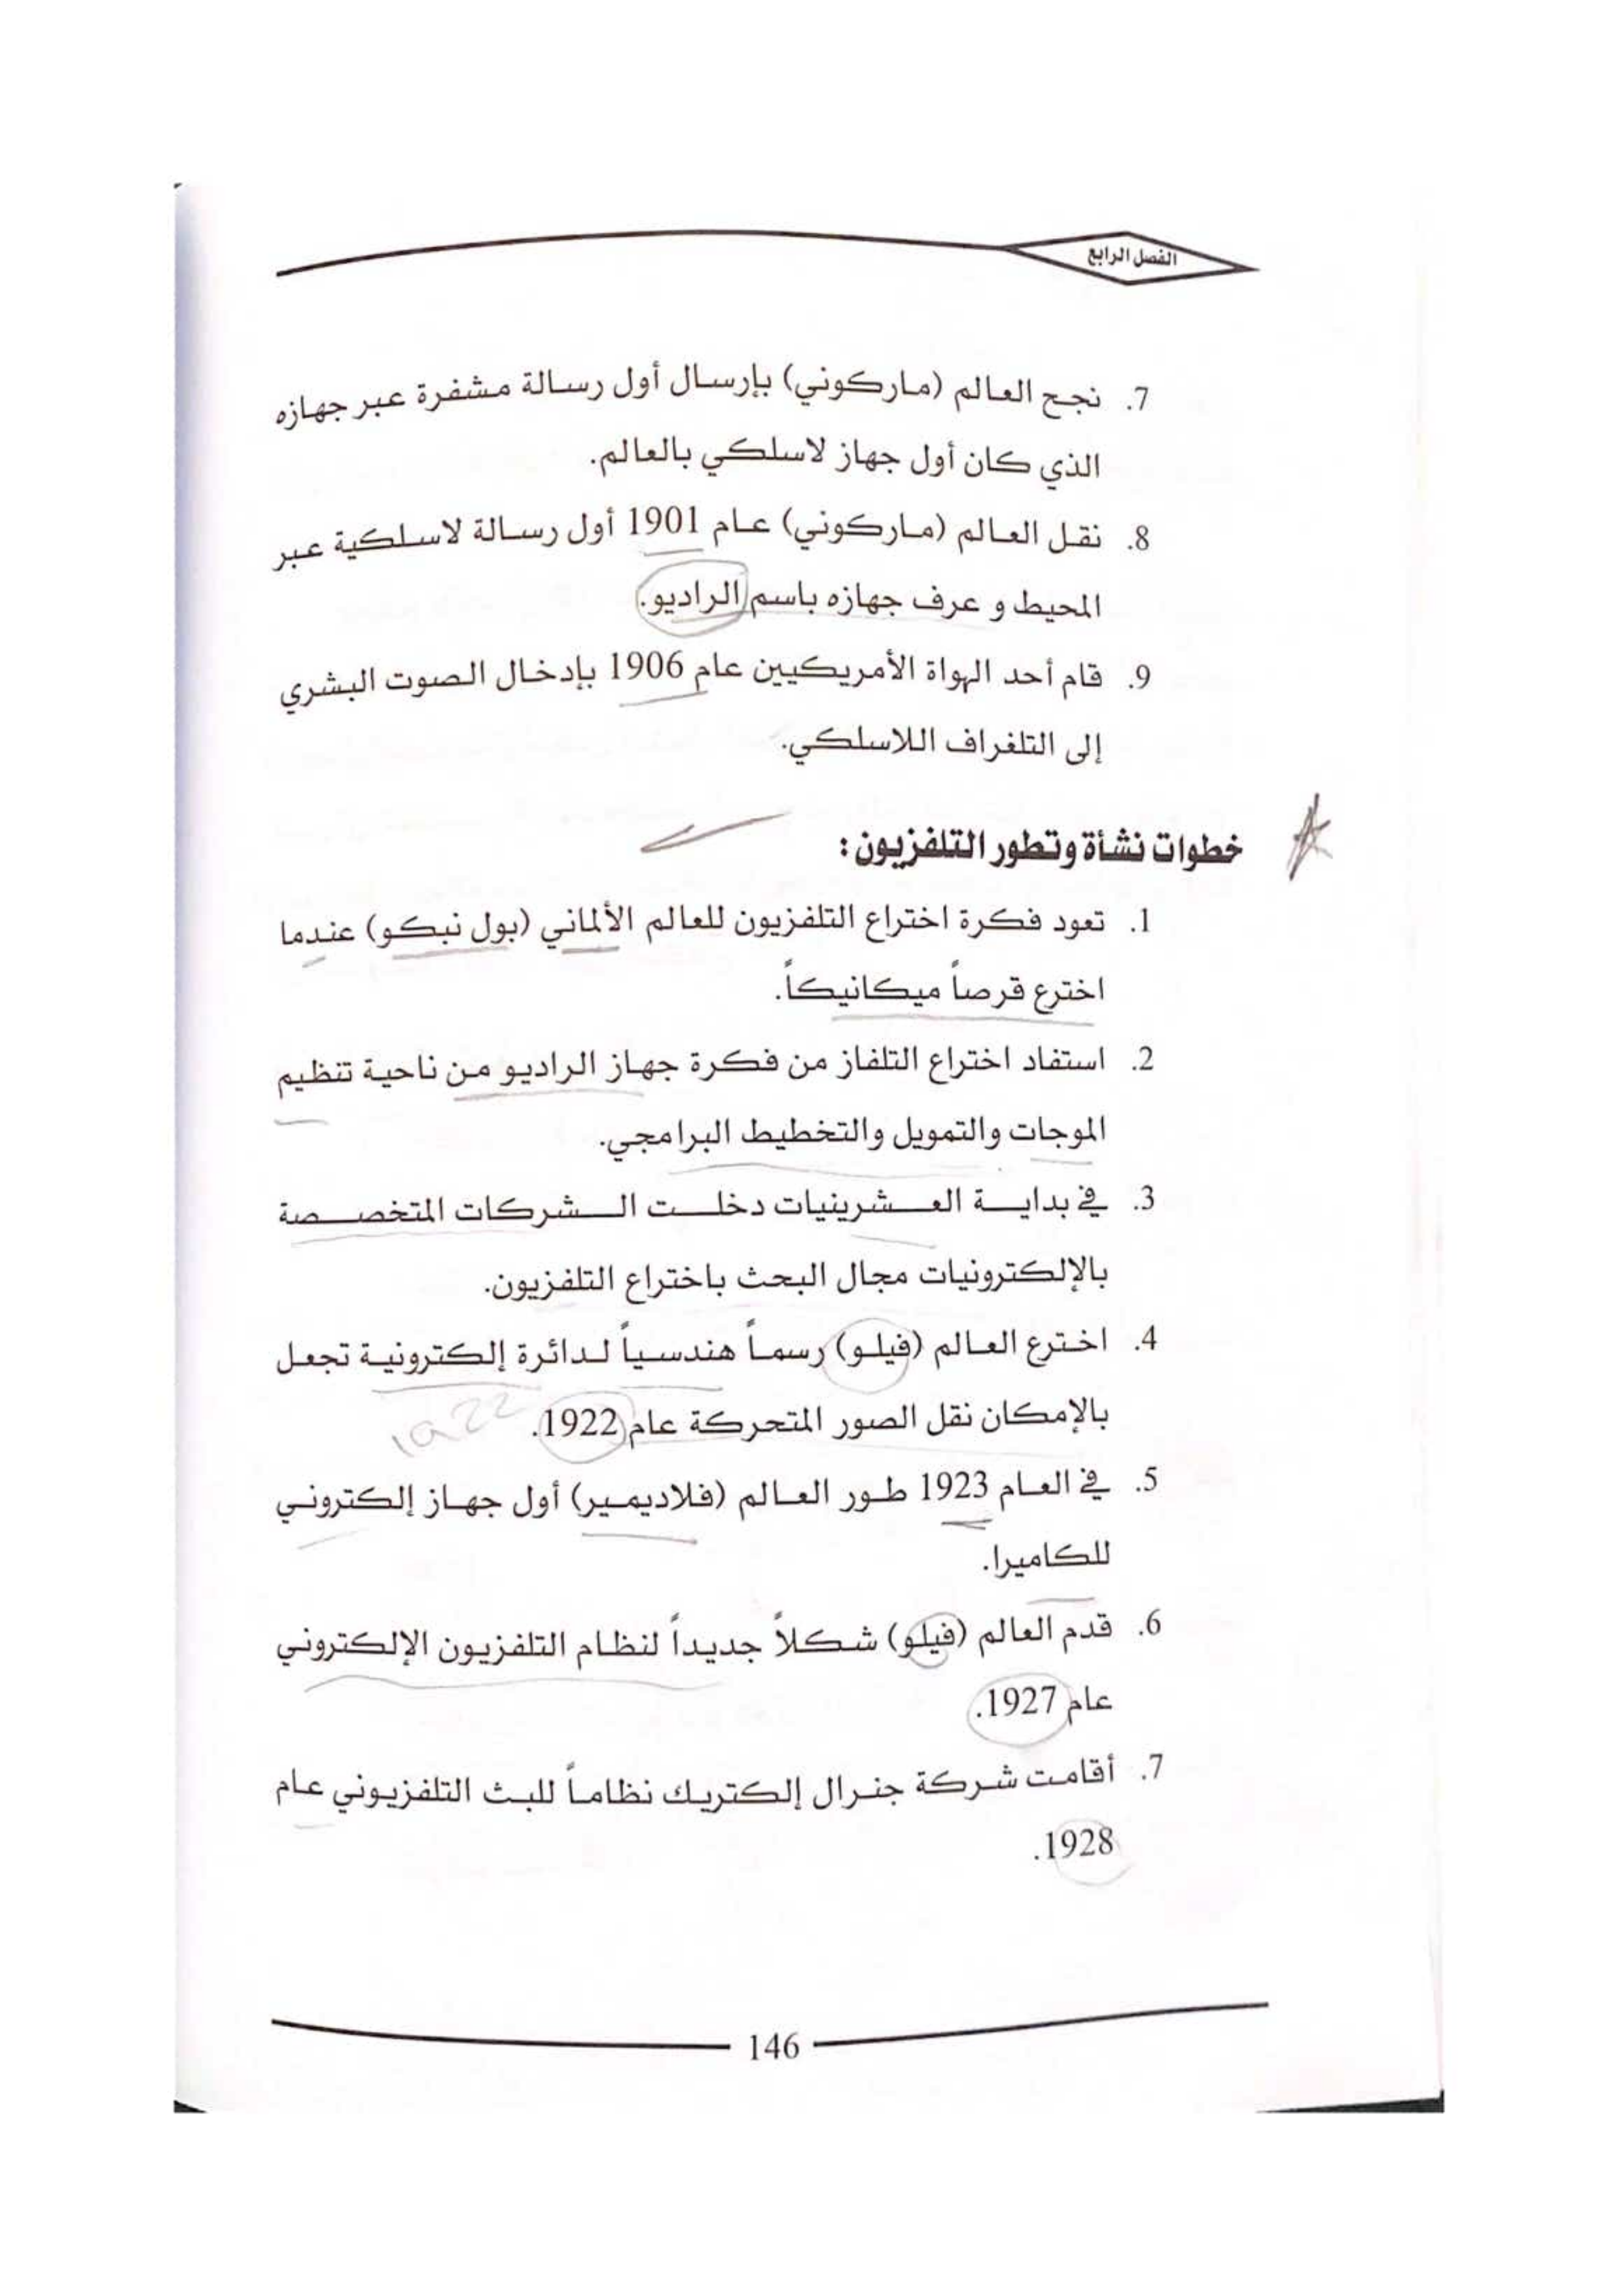 الفصل الرابع
7. نجح العالم (ماركوني) بإرسال أول رسالة مشفرة عبر جهازه
الذي كان أول جهاز لاسلكي بالعالم.
8. نقل العالم (ماركوني) عام 1901 أول رسالة لاسلكية عبر
المحيط و عرف جهازه باسم الراديو.
9. قام أحد الهواة الأمريكيين عام 1906 بإدخال الصوت البشري
إلى التلغراف اللاسلكي.
خطوات نشأة وتطور التلفزيون:
1. تعود فكرة اختراع التلفزيون للعالم الألماني (بول نبكو) عندما
اخترع قرصاً ميكانيكاً.
2. استفاد اختراع التلفاز من فكرة جهاز الراديو من ناحية تنظيم
الموجات والتمويل والتخطيط البرامجي.
3. في بداية العشرينيات دخلت الشركات المتخصصة
بالإلكترونيات مجال البحث باختراع التلفزيون.
4. اخترع العالم (فيلو) رسماً هندسياً لدائرة إلكترونية تجعل
بالإمكان نقل الصور المتحركة عام 1922.
1922
5. في العام 1923 طور العالم (فلاديمير) أول جهاز إلكتروني
للكاميرا.
6. قدم العالم (فيلو) شكلاً جديداً لنظام التلفزيون الإلكتروني
عام 1927.
7. أقامت شركة جنرال إلكتريك نظاماً للبث التلفزيوني عام
1928.
146